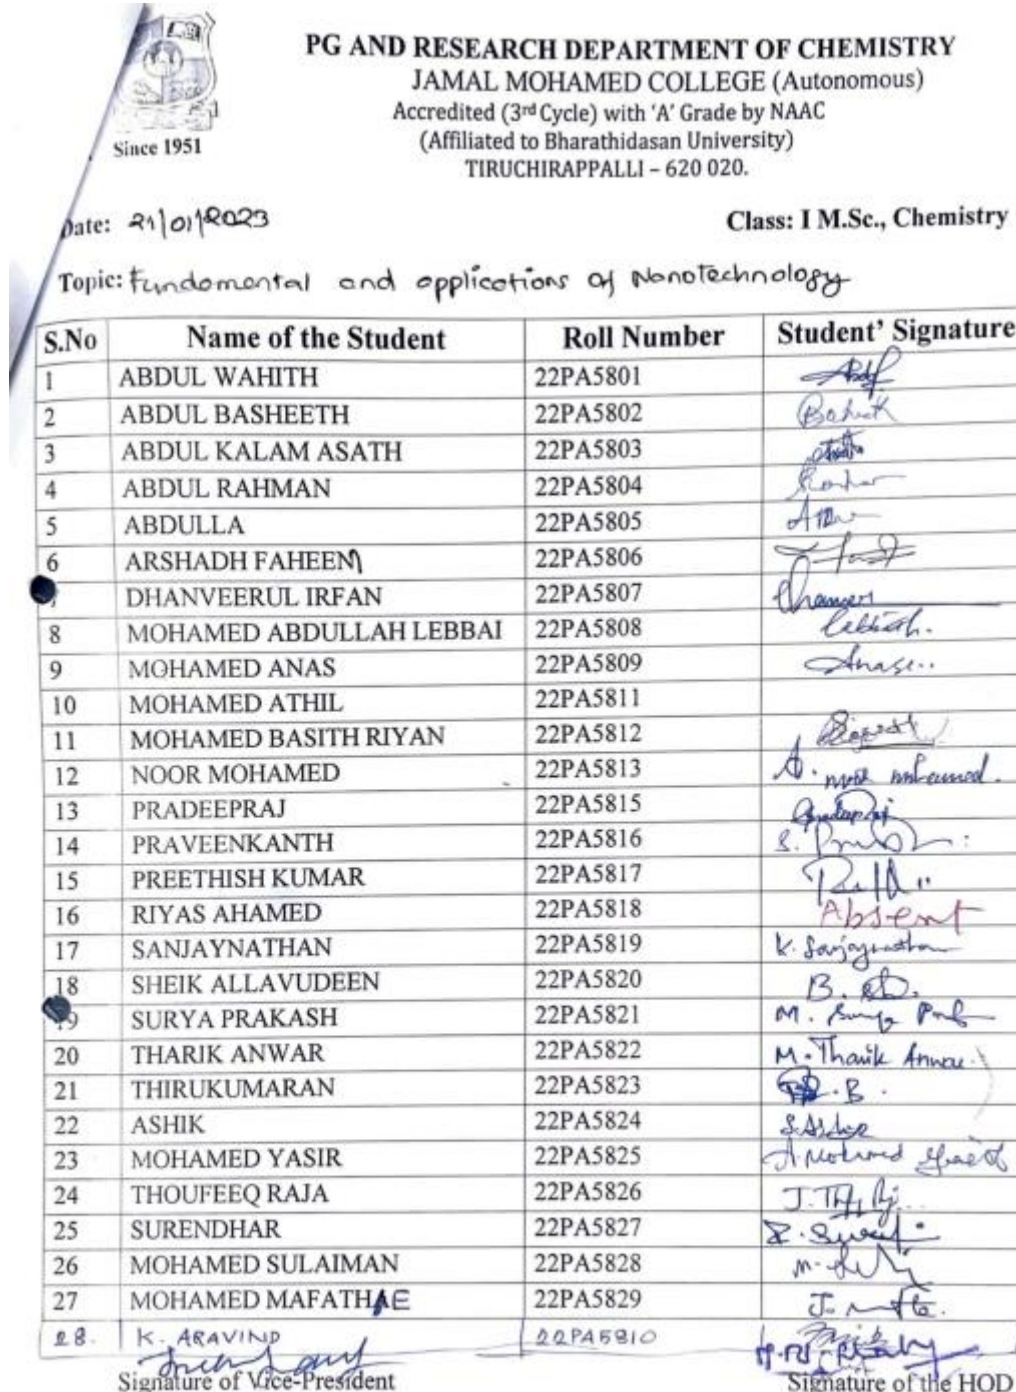 Since 1951
PG AND RESEARCH DEPARTMENT OF CHEMISTRY
JAMAL MOHAMED COLLEGE (Autonomous)
Accredited (3rd Cycle) with 'A' Grade by NAAC
(Affiliated to Bharathidasan University)
TIRUCHIRAPPALLI – 620 020.
Date: 21/01/2023 Class: I M.Sc., Chemistry
Topic: Fundamental and applications of Nanotechnology
S.No Name of the Student Roll Number Student' Signature
1 ABDUL WAHITH 22PA5801
2 ABDUL BASHEETH 22PA5802
3 ABDUL KALAM ASATH 22PA5803
4 ABDUL RAHMAN 22PA5804
5 ABDULLA 22PA5805
6 ARSHADH FAHEEM 22PA5806
DHANVEERUL IRFAN 22PA5807
8 MOHAMED ABDULLAH LEBBAI 22PA5808
9 MOHAMED ANAS 22PA5809 Anas..
10 MOHAMED ATHIL 22PA5811
11 MOHAMED BASITH RIYAN 22PA5812
12 NOOR MOHAMED 22PA5813 A. noor mohamed.
13 PRADEEPRAJ 22PA5815 Pradeepraj
14 PRAVEENKANTH 22PA5816
15 PREETHISH KUMAR 22PA5817
16 RIYAS AHAMED 22PA5818 Absent
17 SANJAYNATHAN 22PA5819 K. Sanjaynathan
18 SHEIK ALLAVUDEEN 22PA5820
19 SURYA PRAKASH 22PA5821
20 THARIK ANWAR 22PA5822 M. Tharik Anwar.
21 THIRUKUMARAN 22PA5823
22 ASHIK 22PA5824
23 MOHAMED YASIR 22PA5825
24 THOUFEEQ RAJA 22PA5826
25 SURENDHAR 22PA5827
26 MOHAMED SULAIMAN 22PA5828
27 MOHAMED MAFATHAE 22PA5829
28. K. ARAVIND 22PA5810
Signature of Vice-President Signature of the HOD